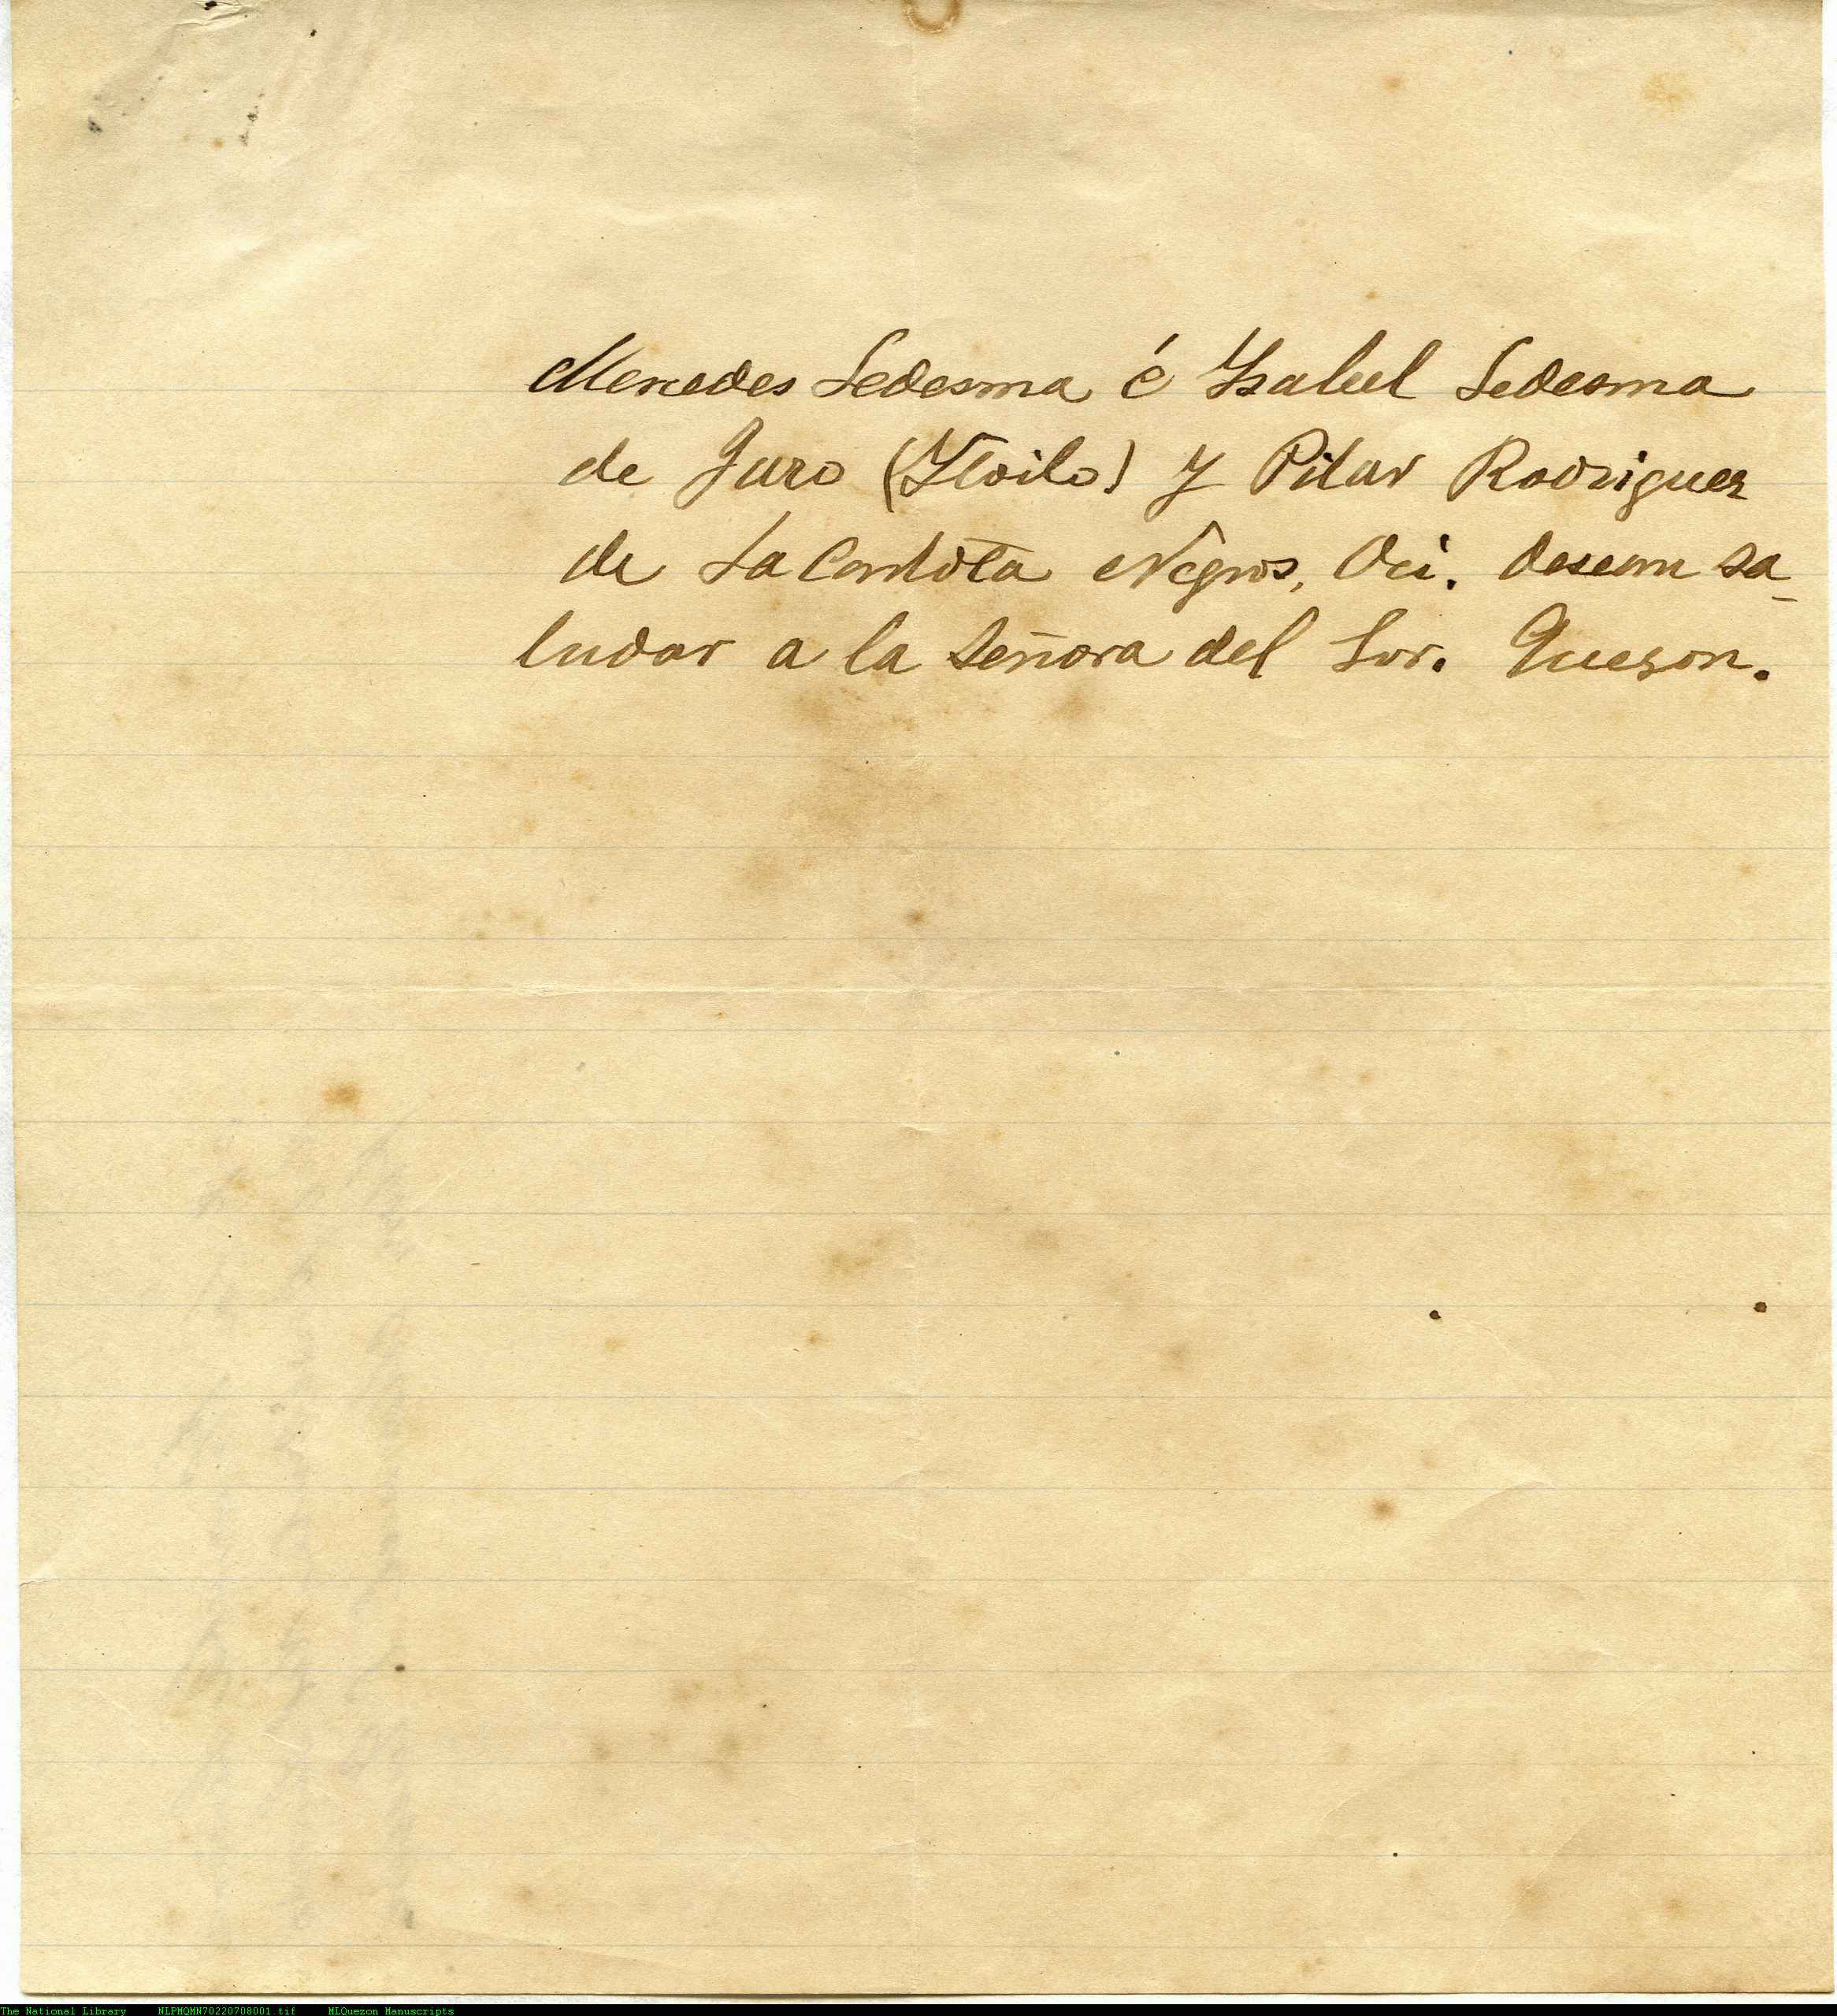 Mercedes Ledesma é Ysabel Ledesma
de Jaro (Yloilo) y Pilar Rodriguez
de La Carlota Negros, Occi. desean sa-
ludar a la señora del Sor. Quezon.
The National Library NLPMQMN70220708001.tif MLQuezon Manuscripts